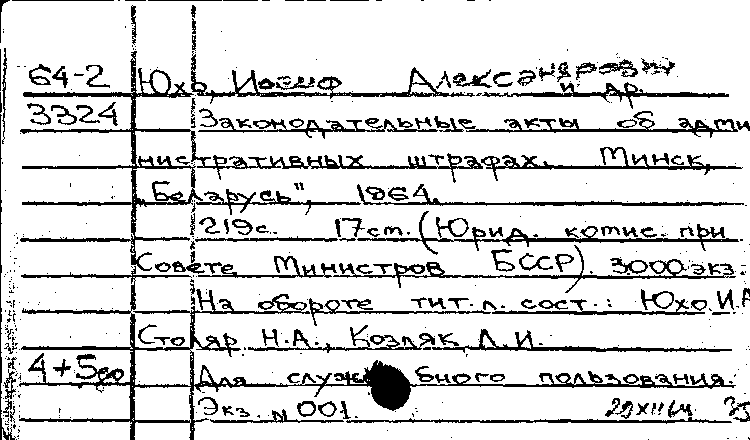 64-2 Юхо, Иосиф Александрович
и др.
3324 Законодательные акты об адми
нистративных штрафах. Минск,
„Беларусь", 1964.
219с. 17см. (Юрид. комис. при
Совете Министров БССР). 3000 экз.
На обороте тит. л. сост.: Юхо И.А
Столяр Н.А., Козляк Л.И.
4+5 Для служебного пользования.
Экз. № 001. 29 XII 64